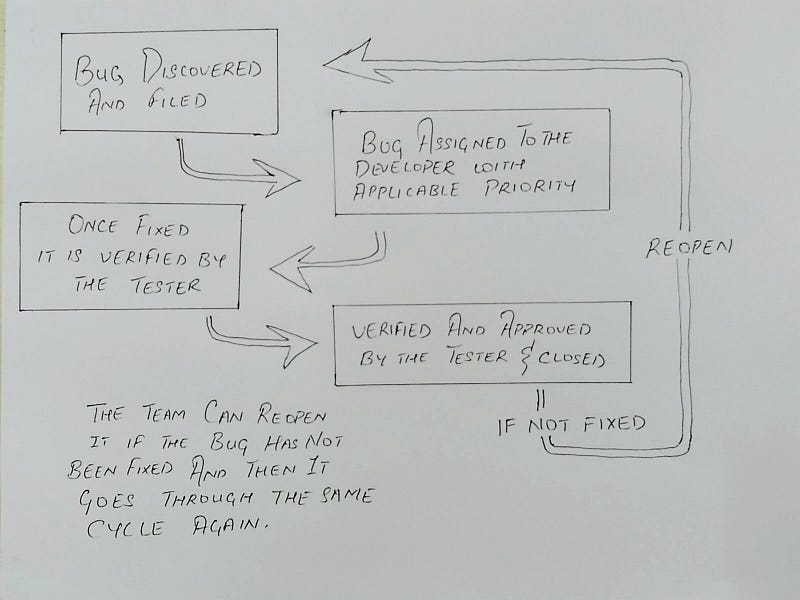 BUG DISCOVERED
AND FILED
BUG ASSIGNED TO THE
DEVELOPER WITH
APPLICABLE PRIORITY
ONCE FIXED
IT IS VERIFIED BY
THE TESTER
REOPEN
VERIFIED AND APPROVED
BY THE TESTER & CLOSED
IF NOT FIXED
THE TEAM CAN REOPEN
IT IF THE BUG HAS NOT
BEEN FIXED AND THEN IT
GOES THROUGH THE SAME
CYCLE AGAIN.